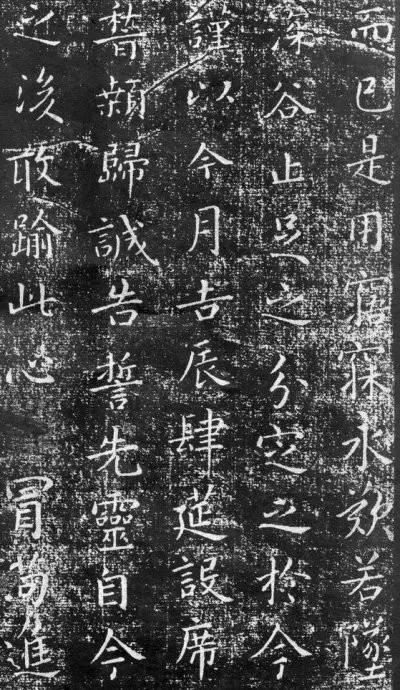 而已是用寤寐永歎若墜
深谷止足之分定之於今
謹以今月吉辰肆筵設席
稽顙歸誠告誓先靈自今
之後敢踰此心 冒苟進